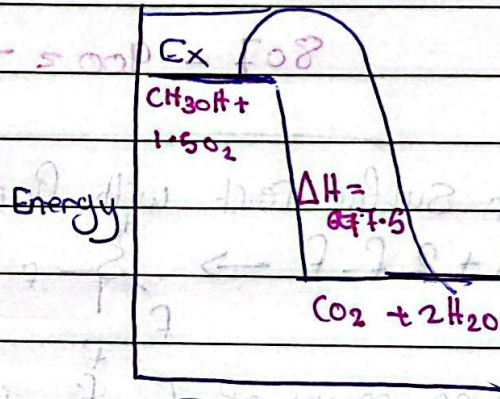 Ex
CH3OH +
1.5O2
Energy
ΔH =
77.5
CO2 + 2H2O